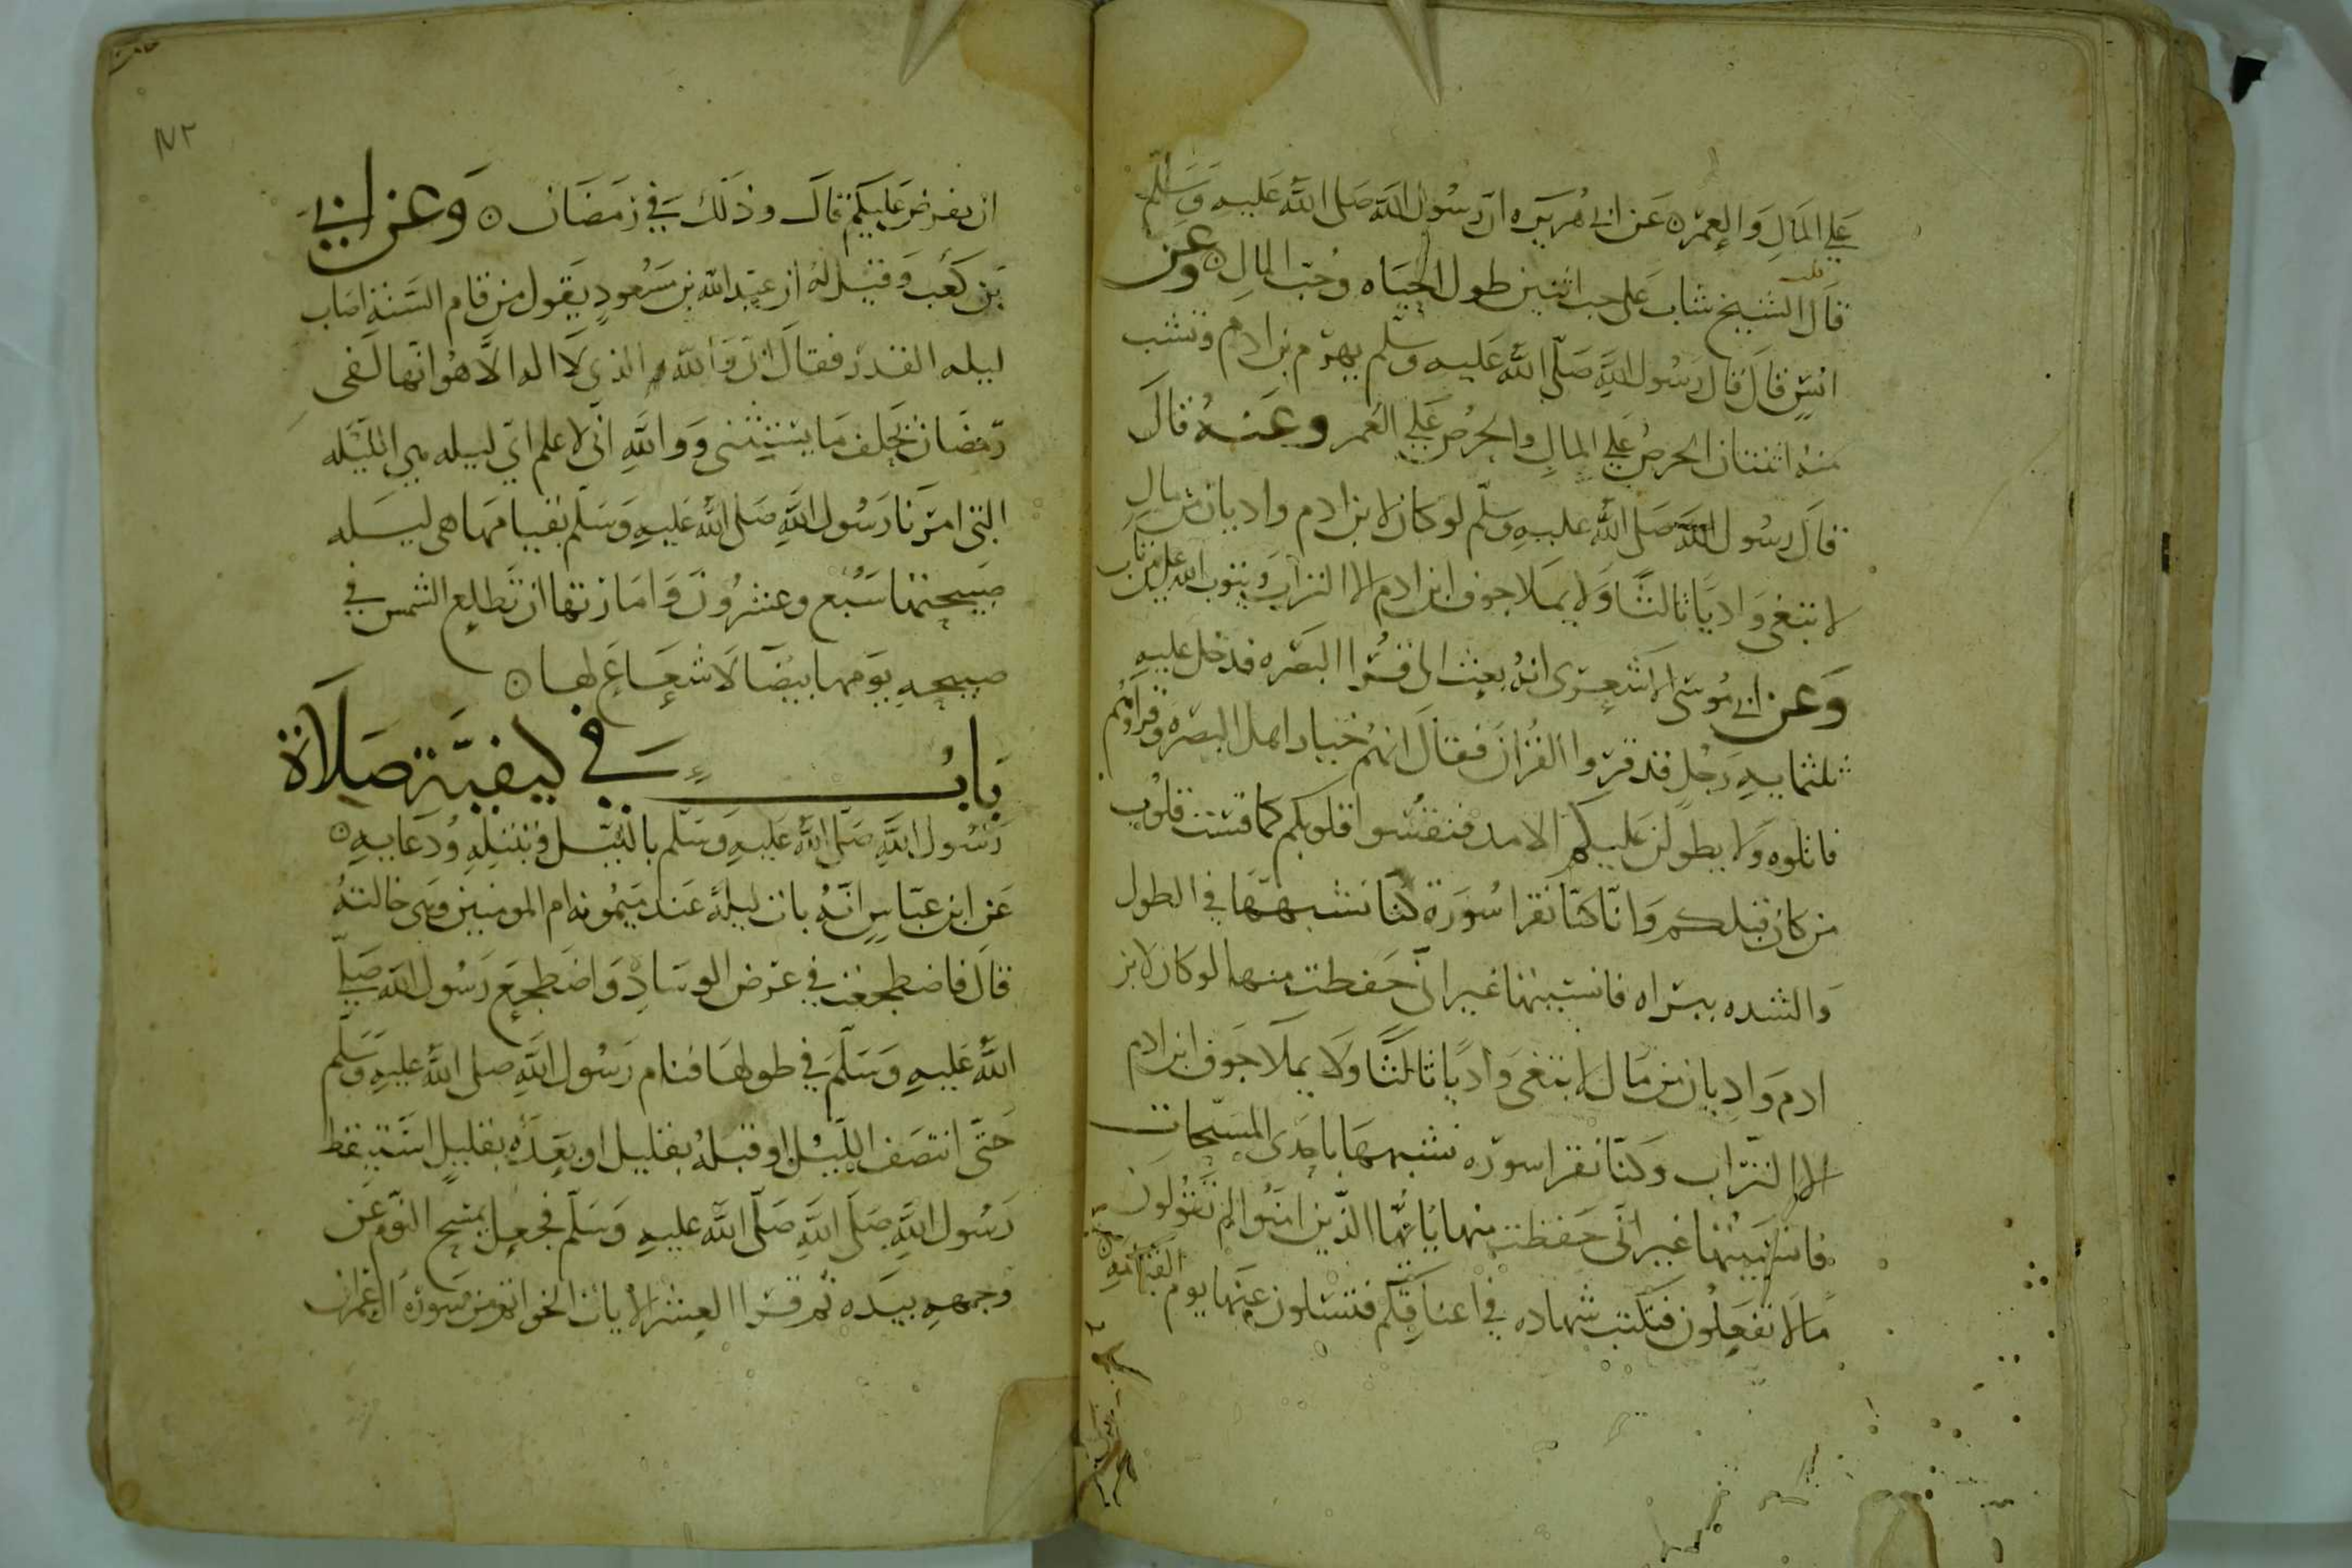 علي المال والعمر ه عن ابي هريره ان رسول الله صلى الله عليه وسلم
قال قلب الشيخ شاب على حب اثنين طول الحياه وحب المال ه وعن
انس قال قال رسول الله صلى الله عليه وسلم يهرم بن ادم وتشب
منه اثنتان الحرص علي المال والحرص علي العمر وعنه قال
قال رسول الله صلى الله عليه وسلم لو كان لابن ادم واديان من مال
لابتغى واديا ثالثا ولا يملا جوف ابن ادم الا التراب ويتوب الله على من تاب
وعن ابي موسى الاشعري انه بعث الى قرا البصره فدخل عليه
ثلثمايه رجل قد قروا القران فقال انهم خيار اهل البصره وقراوهم
فاتلوه ولا يطولن عليكم الامد فتقسوا قلوبكم كما قست قلوب
من كان قبلكم وانا كنا نقرا سورة كنا نشبهها في الطول
والشده ببراه فانسيتها غير اني حفظت منها لو كان لابن
ادم واديان من مال لابتغى واديا ثالثا ولا يملا جوف ابن ادم
الا التراب وكنا نقرا سورة نشبهها باحدى المسبحات
فانسيتها غير اني حفظت منها يايها الذين امنوا لم تقولون
ما لا تفعلون فتكتب شهاده في اعناقكم فتسلون عنها يوم القيامه
ان يفرض عليكم قال وذلك في رمضان ه وعن ابي
بن كعب وقيل له ان عبد الله بن مسعود يقول من قام السنة اصاب
ليله القدر فقال ابي والله الذي لا اله الا هو انها لفى
رمضان يحلف ما يستثنى ووالله اني لاعلم اي ليله هي الليله
التي امرنا رسول الله صلى الله عليه وسلم بقيامها هي ليله
صبيحتها سبع وعشرون وامارتها ان تطلع الشمس في
صبيحه يومها بيضا لا شعاع لها ه
باب في كيفية صلاة
رسول الله صلى الله عليه وسلم بالليل ودعايه ه
عن ابن عباس انه بات ليلة عند ميمونه ام المومنين وهي خالته
قال فاضطجعت في عرض الوساد واضطجع رسول الله صلى
الله عليه وسلم في طولها فنام رسول الله صلى الله عليه وسلم
حتى انتصف الليل او قبله بقليل او بعده بقليل استيقظ
رسول الله صلى الله صلى الله عليه وسلم فجعل يمسح النوم عن
وجهه بيده ثم قرا العشر الايات الخواتم من سورة ال عمران